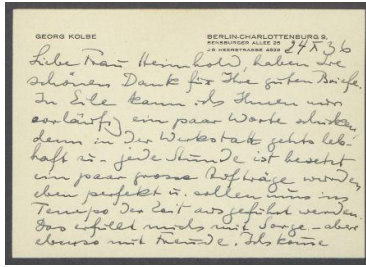 GEORG KOLBE
BERLIN-CHARLOTTENBURG 9,
SENSBURGER ALLEE 25
J 9 HEERSTRASSE 4928
24 X 36
Liebe Frau Heimhold, haben Sie
schönen Dank für Ihre guten Briefe.
In Eile kann ich Ihnen nur
vorläufig ein paar Worte schicken
denn in der Werkstatt gehts leb-
haft zu - jede Stunde ist besetzt
ein paar grosse Aufträge wurden
eben perfekt u. sollen nun im
Tempo der Zeit ausgeführt werden.
Das erfüllt mich mit Sorge - aber
ebenso mit Freude. Ich komme